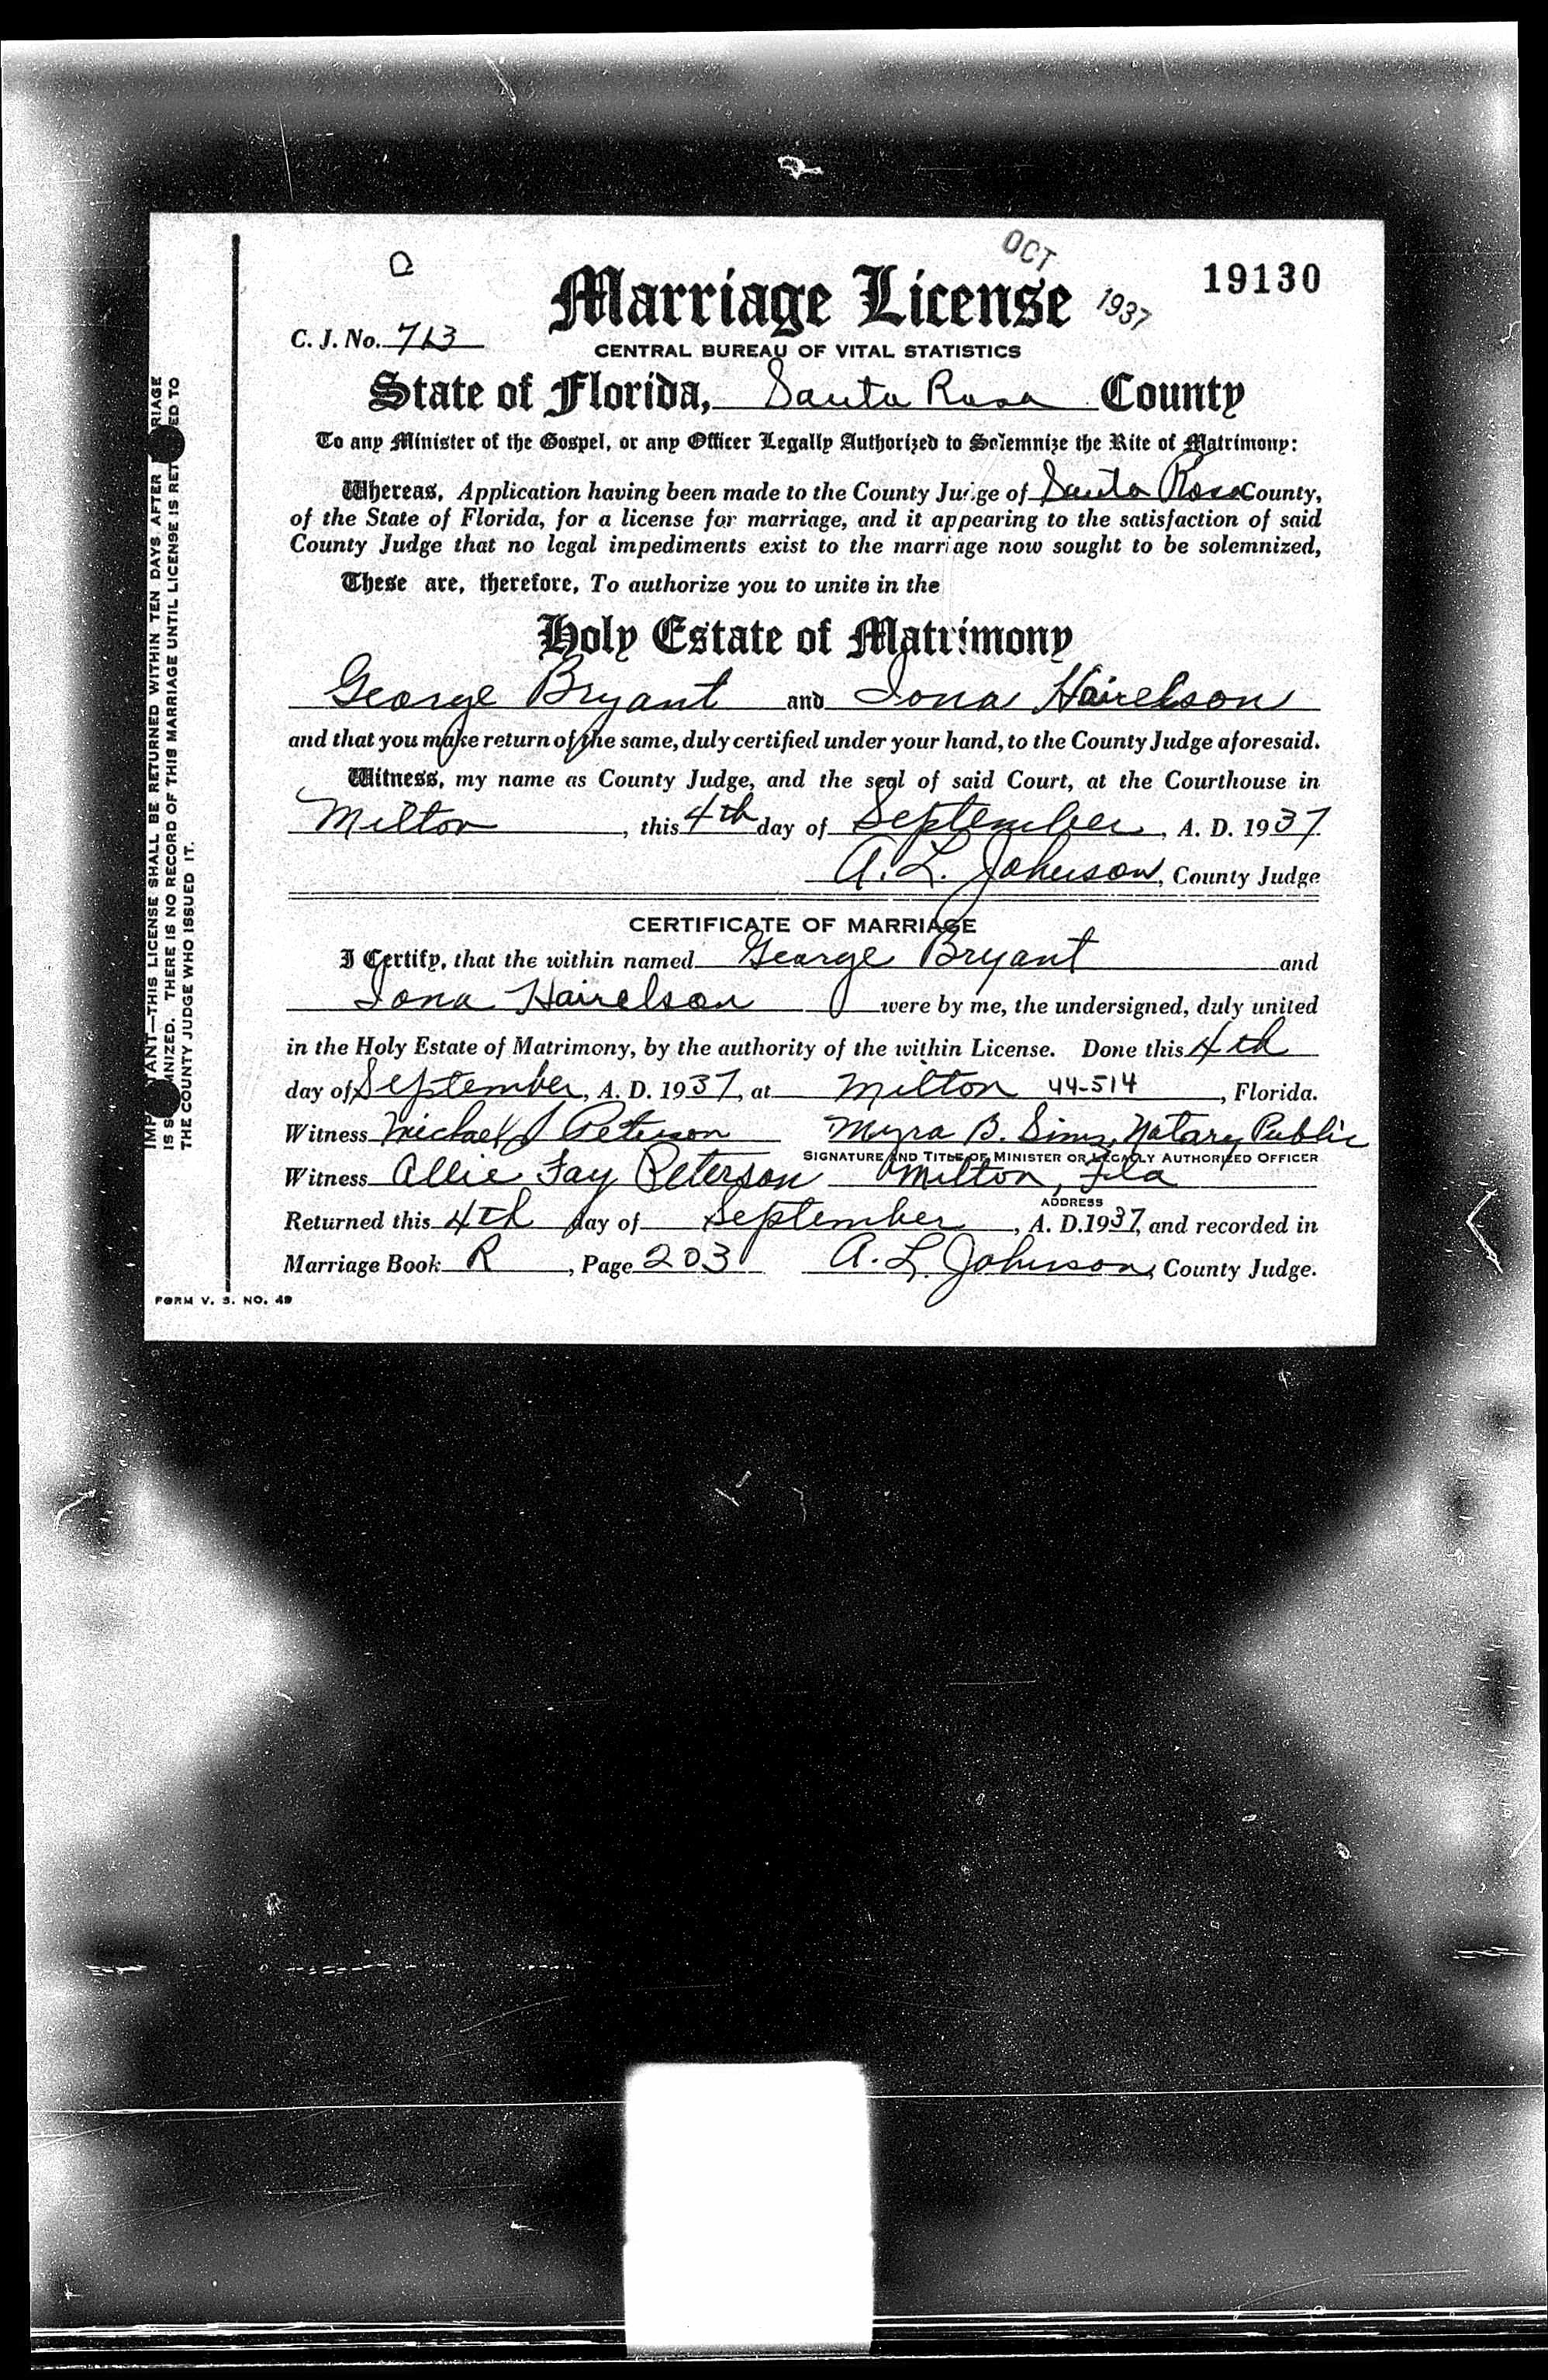 OCT
1937
19130
Marriage License
C. J. No. 713
CENTRAL BUREAU OF VITAL STATISTICS
State of Florida, Santa Rosa County
To any Minister of the Gospel, or any Officer Legally Authorized to Solemnize the Rite of Matrimony:
Whereas, Application having been made to the County Judge of Santa Rosa County,
of the State of Florida, for a license for marriage, and it appearing to the satisfaction of said
County Judge that no legal impediments exist to the marriage now sought to be solemnized,
These are, therefore, To authorize you to unite in the
Holy Estate of Matrimony
George Bryant and Iona Hairelson
and that you make return of the same, duly certified under your hand, to the County Judge aforesaid.
Witness, my name as County Judge, and the seal of said Court, at the Courthouse in
Milton, this 4th day of September, A. D. 1937
A. L. Johnson, County Judge
CERTIFICATE OF MARRIAGE
I Certify, that the within named George Bryant and
Iona Hairelson were by me, the undersigned, duly united
in the Holy Estate of Matrimony, by the authority of the within License. Done this 4th
day of September, A. D. 1937, at Milton 44-514, Florida.
Witness Michael J Peterson Myra B. Sims, Notary Public
SIGNATURE AND TITLE OF MINISTER OR LEGALLY AUTHORIZED OFFICER
Witness Allie Fay Peterson Milton, Fla
ADDRESS
Returned this 4th day of September, A. D. 1937, and recorded in
Marriage Book R, Page 203 A. L. Johnson, County Judge.
FORM V. S. NO. 49
IMP TANT—THIS LICENSE SHALL BE RETURNED WITHIN TEN DAYS AFTER RIAGE
IS S MNIZED. THERE IS NO RECORD OF THIS MARRIAGE UNTIL LICENSE IS RET ED TO
THE COUNTY JUDGE WHO ISSUED IT.